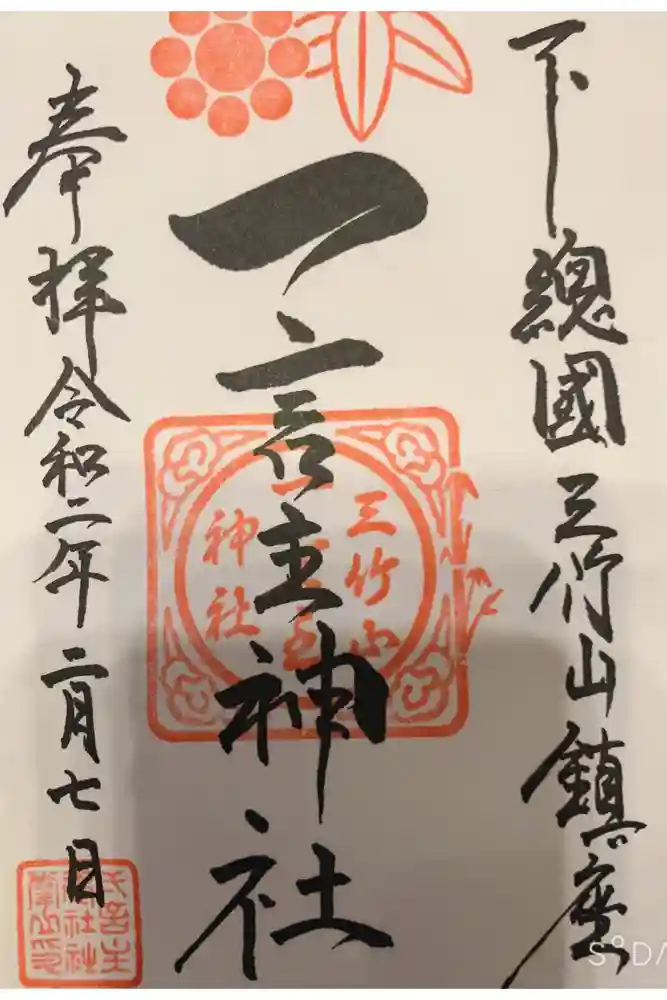 下總國三竹山鎮座
一言主神社
奉拝令和二年二月七日
三竹山
一言主
神社
SODA